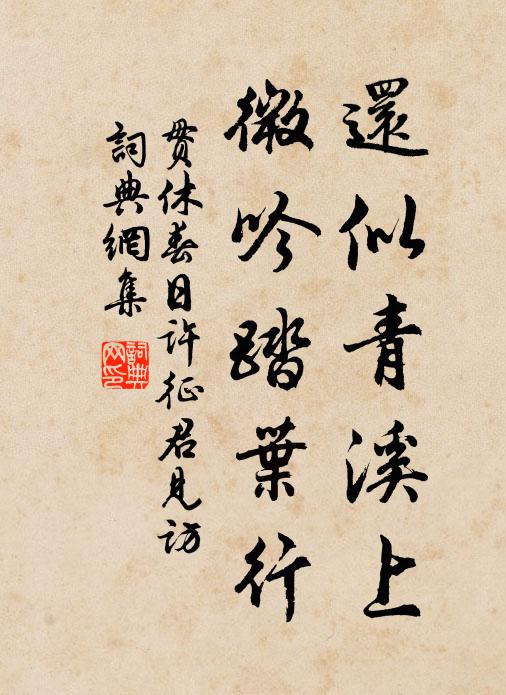 還似青溪上
微吟踏葉行
貫休春日許征君見訪
詞典網集
詞典
网印